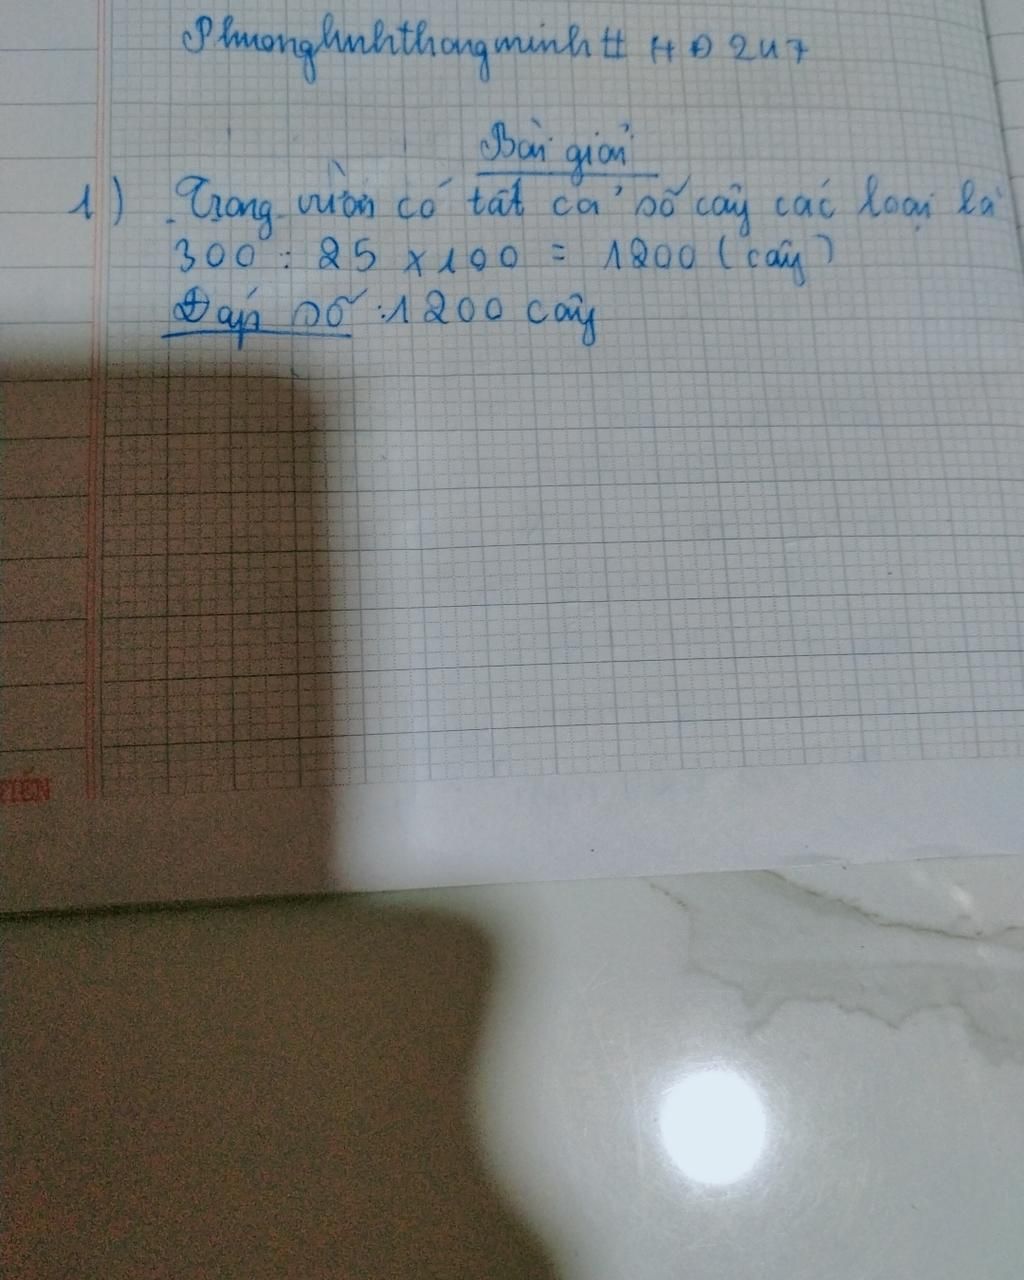 Phuonglinhthongminh # HĐ 247
Bài giải
1) Trong vườn có tất cả số cây các loại là
300 : 25 x 100 = 1200 (cây)
Đáp số : 1200 cây